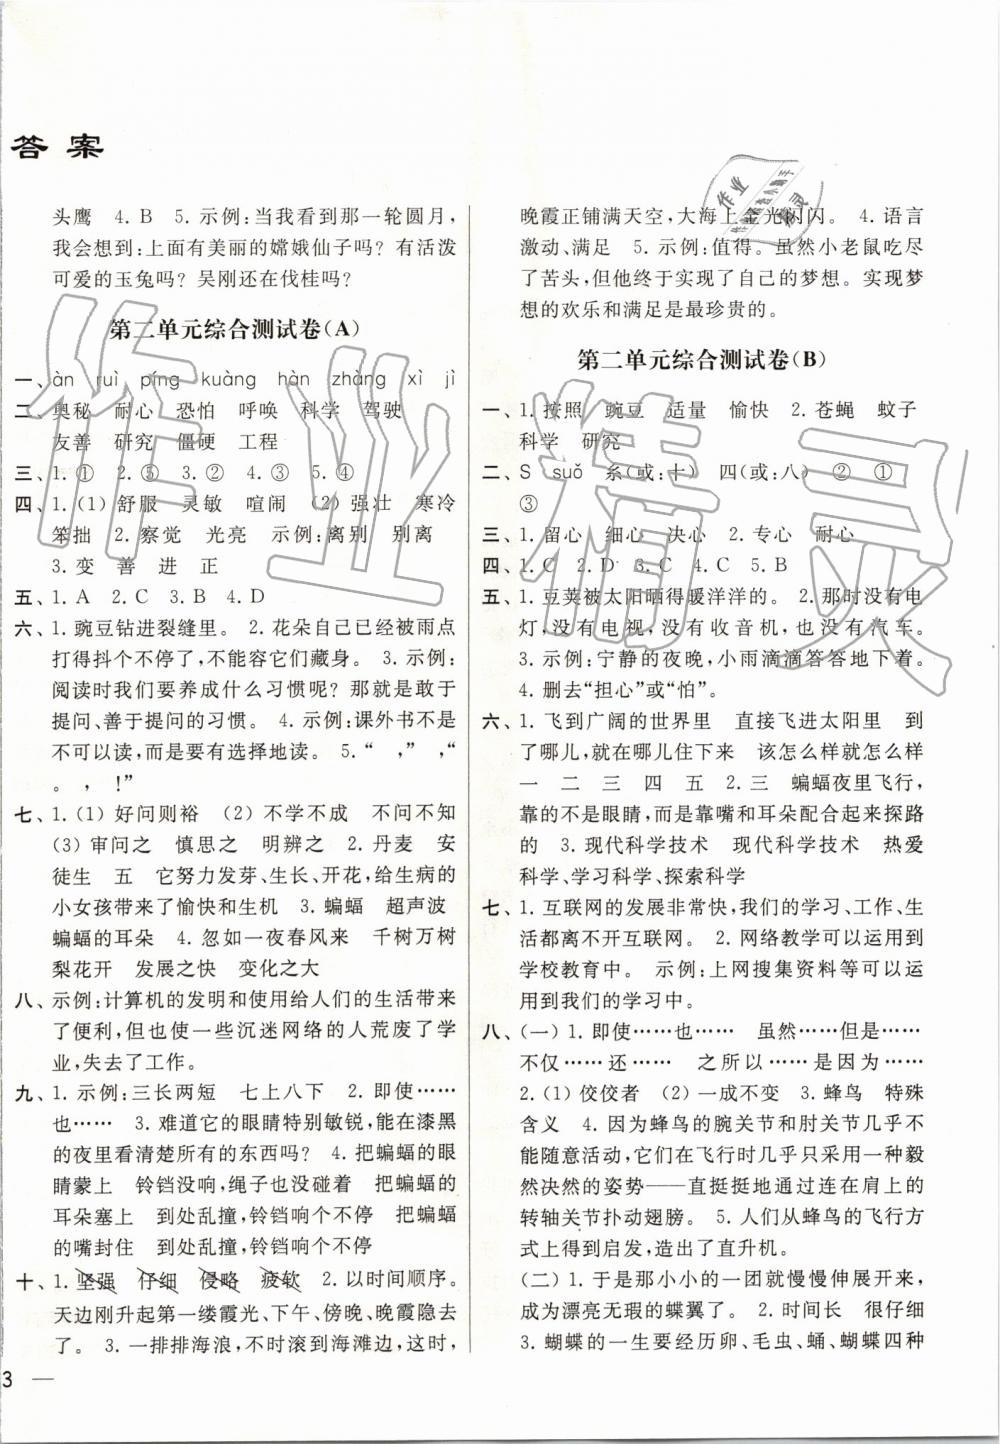 答案
头鹰 4. B 5. 示例:当我看到一轮圆月,
我会想到:上面有美丽的嫦娥仙子吗?有活泼
可爱的玉兔吗?吴刚还在伐桂吗?
第二单元综合测试卷(A)
一、àn ruì píng kuàng hàn zhàng xì jì
二、奥秘 耐心 恐怕 呼唤 科学 驾驶
友善 研究 僵硬 工程
三、1.① 2.⑤ 3.② 4.③ 5.④
四、1.(1)舒服 灵敏 喧闹 (2)强壮 寒冷
笨拙 2.察觉 光亮 示例:离别 别离
3.变 善 进 正
五、1. A 2. C 3. B 4. D
六、1. 豌豆钻进裂缝里。 2. 花朵自己已经被雨点
打得抖个不停了,不能容它们藏身。 3. 示例:
阅读时我们要养成什么习惯呢?那就是敢于
提问、善于提问的习惯。 4. 示例:课外书不是
不可以读,而是要有选择地读。 5.“ ,” ,“
。 , !”
七、1.(1)好问则裕 (2)不学不成 不问不知
(3)审问之 慎思之 明辨之 2. 丹麦 安
徒生 五 它努力发芽、生长、开花,给生病的
小女孩带来了愉快和生机 3. 蝙蝠 超声波
蝙蝠的耳朵 4. 忽如一夜春风来 千树万树
梨花开 发展之快 变化之大
八、示例:计算机的发明和使用给人们的生活带来
了便利,但也使一些沉迷网络的人荒废了学
业,失去了工作。
九、1. 示例:三长两短 七上八下 2. 即使……
也…… 3. 难道它的眼睛特别敏锐,能在漆黑
的夜里看清楚所有的东西吗? 4. 把蝙蝠的眼
睛蒙上 铃铛没响,绳子也没碰着 把蝙蝠的
耳朵塞上 到处乱撞,铃铛响个不停 把蝙蝠
的嘴封住 到处乱撞,铃铛响个不停
十、1. 坚强 仔细 侵略 疲软 2. 以时间顺序。
天边刚升起第一缕霞光、下午、傍晚、晚霞隐去
了。 3. 一排排海浪,不时滚到海滩边,这时,
3 —
晚霞正铺满天空,大海上金光闪闪。 4. 语言
激动、满足 5. 示例:值得。虽然小老鼠吃尽
了苦头,但他终于实现了自己的梦想。实现梦
想的欢乐和满足是最珍贵的。
第二单元综合测试卷(B)
一、1. 按照 豌豆 适量 愉快 2. 苍蝇 蚊子
科学 研究
二、S suǒ 系(或:十) 四(或:八) ② ①
③
三、1. 留心 细心 决心 2. 专心 耐心
四、1. C 2. D 3. C 4. C 5. B
五、1. 豆荚被太阳晒得暖洋洋的。 2. 那时没有电
灯,没有电视,没有收音机,也没有汽车。
3. 示例:宁静的夜晚,小雨滴滴答答地下着。
4. 删去“担心”或“怕”。
六、1. 飞到广阔的世界里 直接飞进太阳里 到
了哪儿,就在哪儿住下来 该怎么样就怎么样
一 二 三 四 五 2. 三 蝙蝠夜里飞行,
靠的不是眼睛,而是靠嘴和耳朵配合起来探路
的 3. 现代科学技术 现代科学技术 热爱
科学、学习科学、探索科学
七、1. 互联网的发展非常快,我们的学习、工作、生
活都离不开互联网。 2. 网络教学可以运用到
学校教育中。 示例:上网搜集资料等可以运
用到我们的学习中。
八、(一)1. 即使……也…… 虽然……但是……
不仅……还…… 之所以……是因为……
2.(1)佼佼者 (2)一成不变 3. 蜂鸟 特殊
含义 4. 因为蜂鸟的腕关节和肘关节几乎不
能随意活动,它们在飞行时几乎只采用一种毅
然决然的姿势——直挺挺地通过连在肩上的
转轴关节扑动翅膀。 5. 人们从蜂鸟的飞行方
式上得到启发,造出了直升机。
(二)1. 于是那小小的一团就慢慢伸展开来,
成为漂亮无瑕的蝶翼了。 2. 时间长 很仔细
3. 蝴蝶的一生要经历卵、毛虫、蛹、蝴蝶四种
作业精灵
作业
精灵